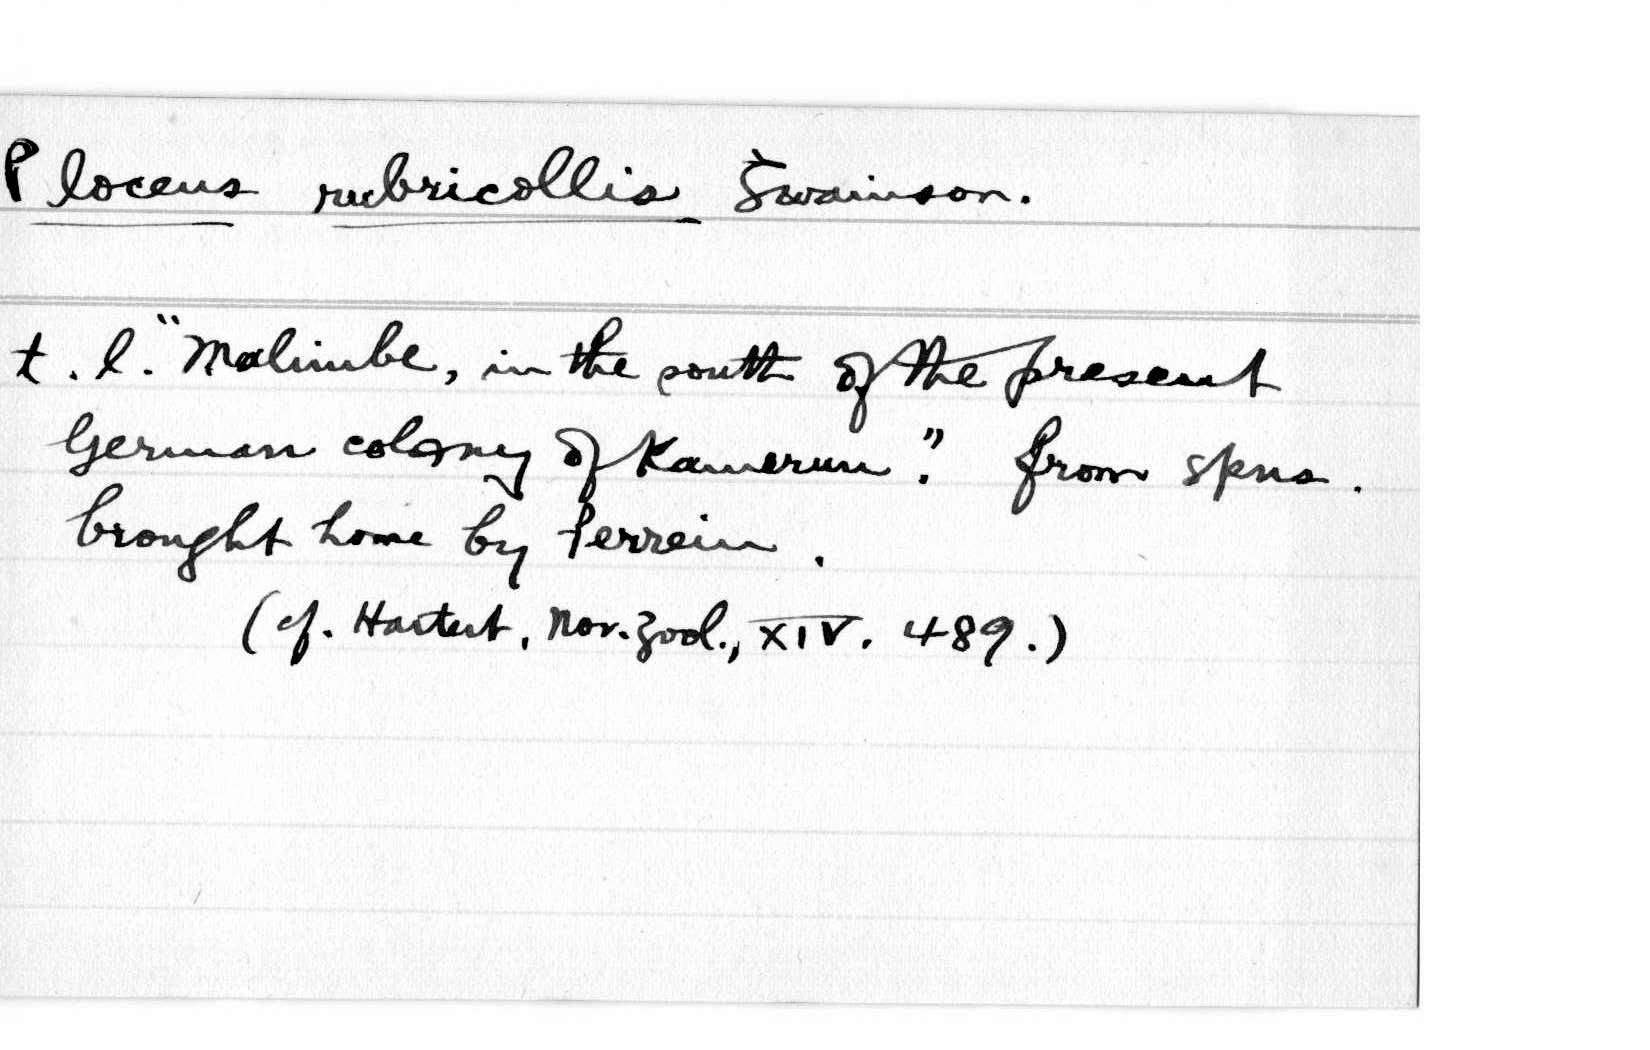 Ploceus rubricollis Swainson.
t. l. "Malimbe, in the south of the present
German colony of Kamerun". from spns.
brought home by Perrein.
(cf. Hartert, Nov. Zool., XIV. 489.)